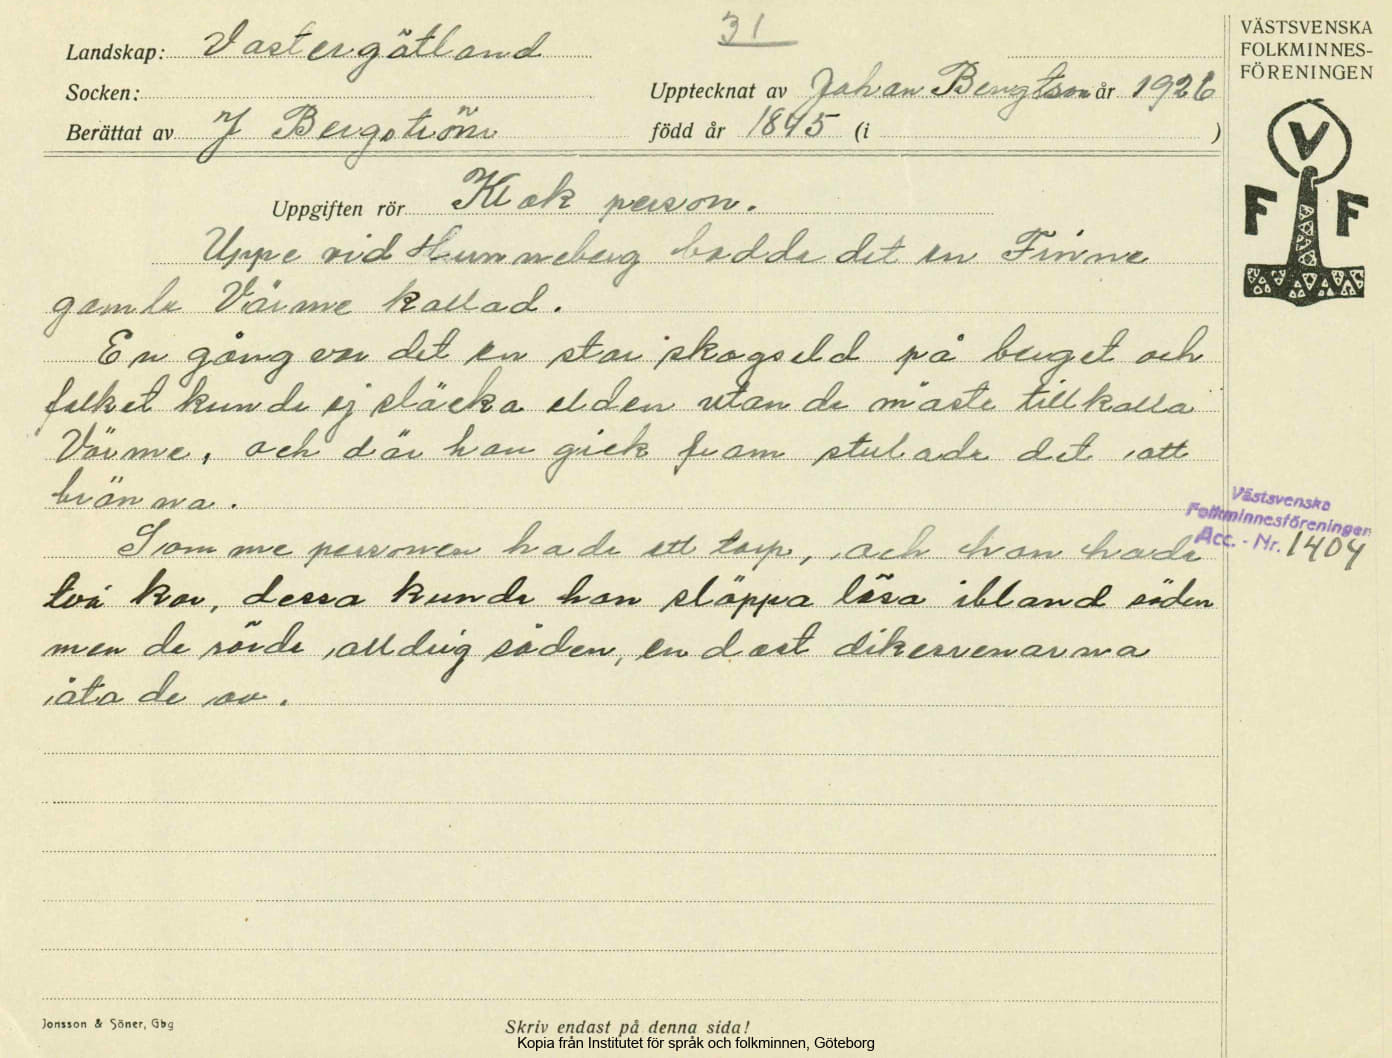 31
VÄSTSVENSKA
FOLKMINNES-
FÖRENINGEN
V
F F
Landskap: Västergötland
Socken: Upptecknat av Johan Bengtson år 1926
Berättat av J Bergström född år 1845 (i )
Uppgiften rör Klok person.
Uppe vid Hunneberg bodde det en Finne
gamle Värme kallad.
En gång var det en stor skogseld på berget och
folket kunde ej släcka elden utan de måste tillkalla
Värme, och där han gick fram slutade det att
bränna.
Samme personen hade ett torp, och han hade
två kor, dessa kunde han släppa lösa ibland säden
men de rörde alldrig säden, endast dikesrenarna
åto de av.
Västsvenska
Folkminnesföreningen
Acc. - Nr. 1404
Jonsson & Söner, Gbg
Skriv endast på denna sida!
Kopia från Institutet för språk och folkminnen, Göteborg